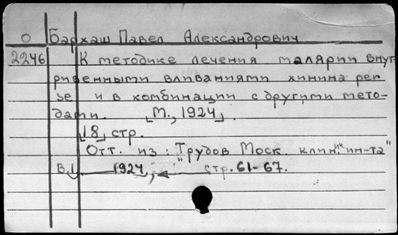 О Бархаш Павел Александрович
2246 К методике лечения малярии внут-
ривенными вливаниями хинина per
se и в комбинации с другими мето-
дами. М., 1924.
8 стр.
Отт. из: "Трудов Моск. клин. ин-та"
в.1 1924, стр. 61-67.